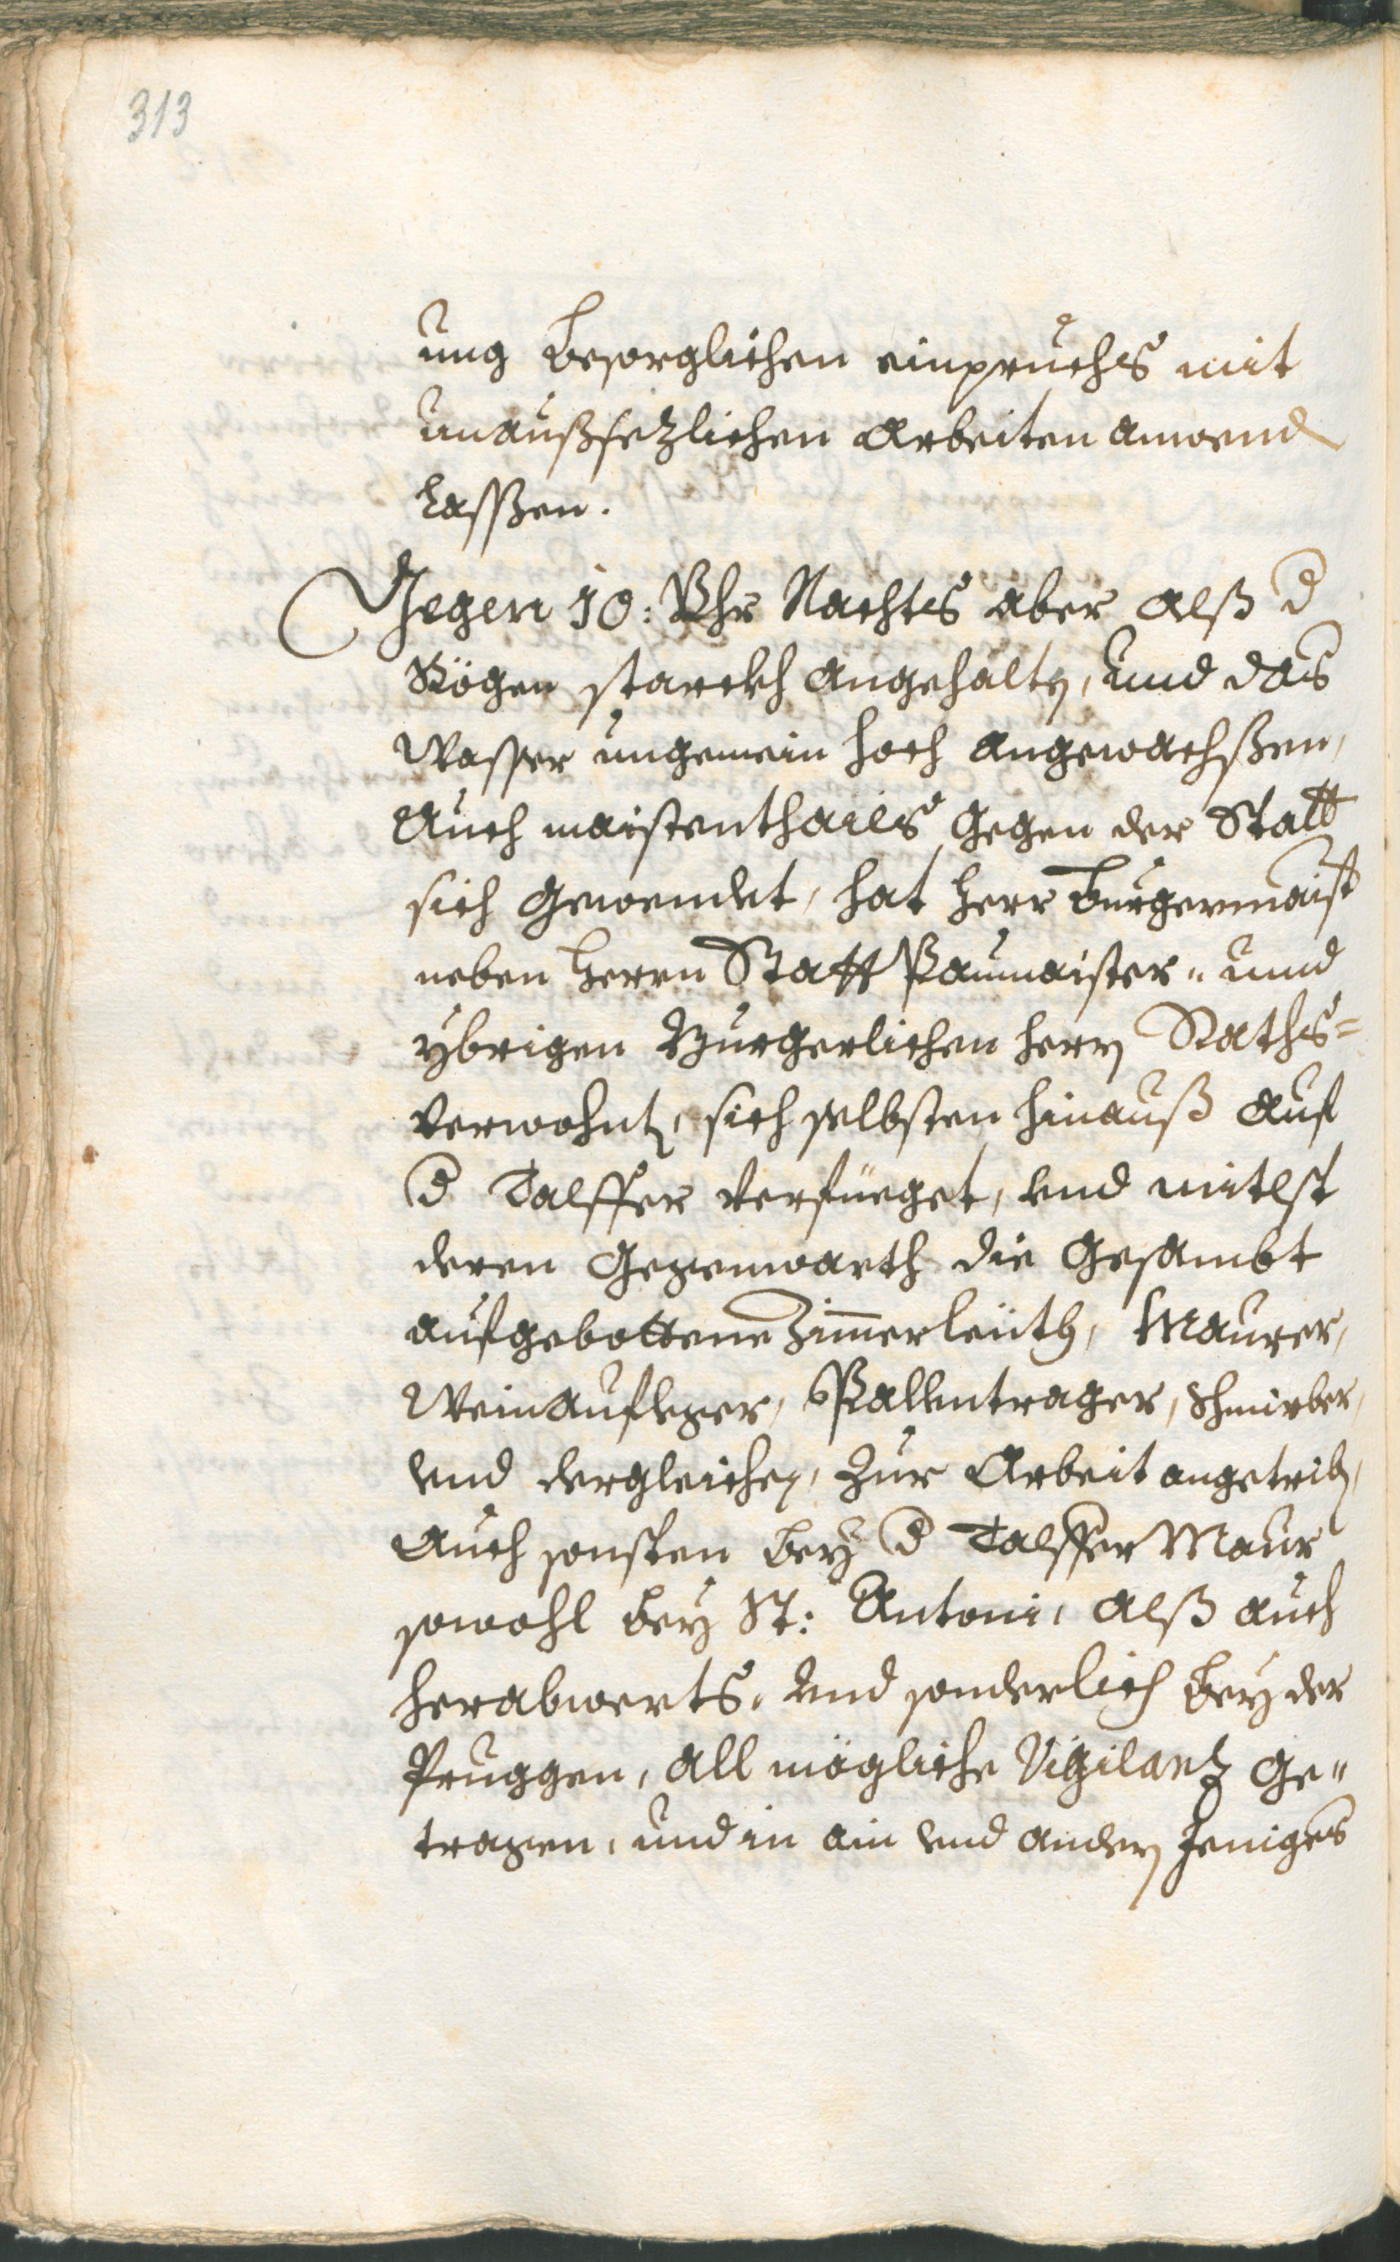 313
ung besorglichen einpruchs mit
unaußsezlichen Arbeiten anwend
lassßen.
Gegen 10: Vhr Nachts aber alß d
Rögen starckh angehalt, und das
Wasser ungemein hoch angewachßen,
Auch maistenthails gegen der Statt
sich gewendet, hat Herr Burgermaist
neben Herrn Statt Paumaister- und
ybrigen Burgerlichen Herrn Raths=
verwohnt, sich selbsten hinauß auf
d Talffer verfüeget, vnd mitlst
deren Gegenwarth die Gesambt
aufgebottene Zimerleüth, Maurer,
Weinaufleger, Pallentrager, Schmirber,
vnd dergleichen, zur Arbeit angetrib,
Auch sonsten bey d Talffer Maur
sowohl bey St: Antoni, alß auch
herabwerts, vnd sonderlich bey der
Pruggen, all mögliche Vigilantz ge-
tragen, und in ain vnd andern jeniges